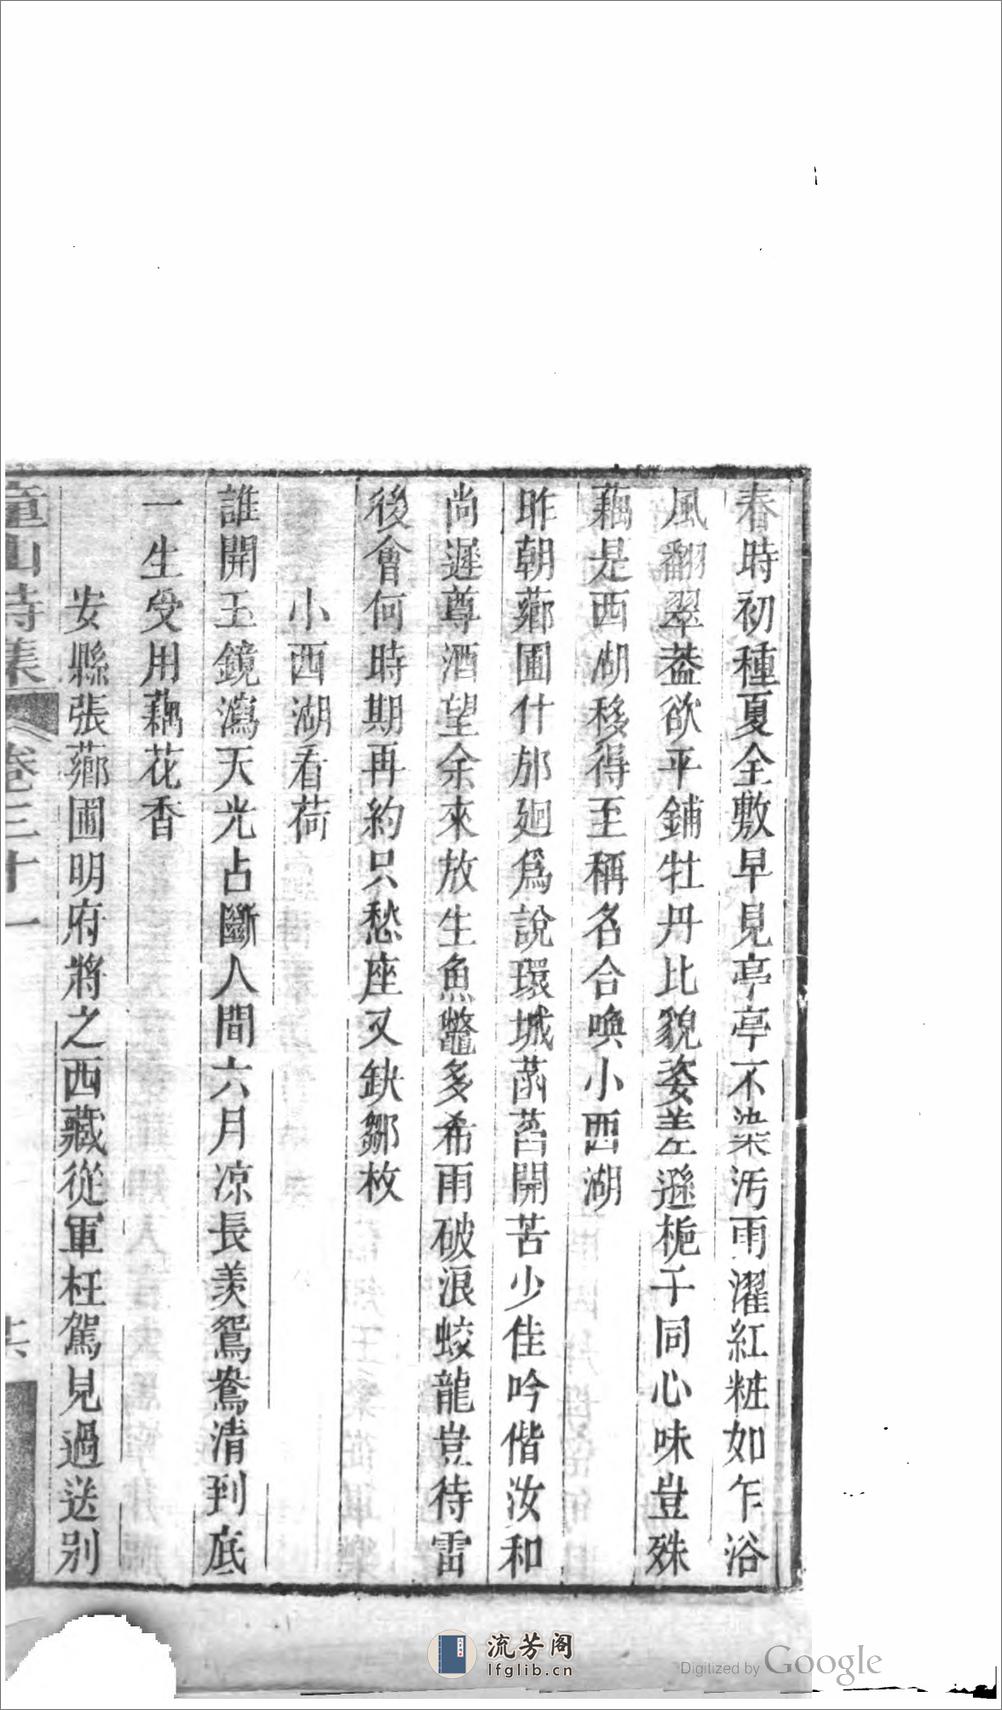 春時初種夏全敷早見亭亭不染汚雨濯紅粧如乍浴
風翻翠蓋欲平鋪牡丹比貌姿差遜梔子同心味豈殊
藕是西湖移得至稱名合喚小西湖
昨朝薌圃什邡廻爲說環城菡萏開苦少佳吟偕汝和
尚遲尊酒望余來放生魚鼈多希雨破浪蛟龍豈待雷
後會何時期再約只愁座又缺鄒枚
小西湖看荷
誰開玉鏡瀉天光占斷人間六月凉長羨鴛鴦清到底
一生受用藕花香
安縣張薌圃明府將之西藏從軍枉駕見過送别
童山詩集 卷三十一
流芳阁
lfglib.cn
Digitized by Google